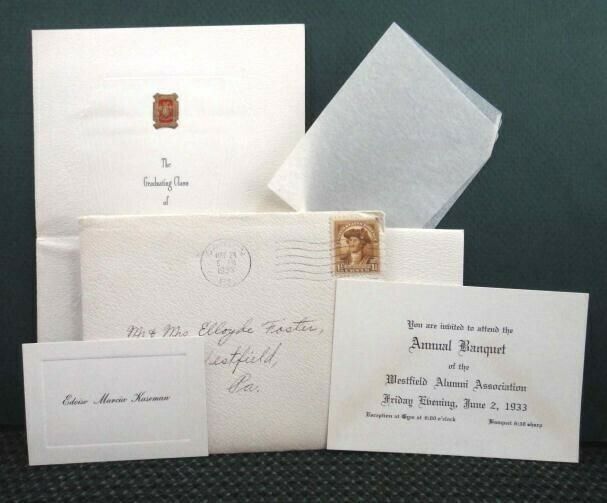 The
Graduating Class
of
1933
Mr & Mrs. Elloyde Foster,
Westfield,
Pa.
Edviso Marciv Kaseman
You are invited to attend the
Annual Banquet
of the
Westfield Alumni Association
Friday Evening, June 2, 1933
Reception at Gym at 6:00 o'clock Banquet 6:30 sharp